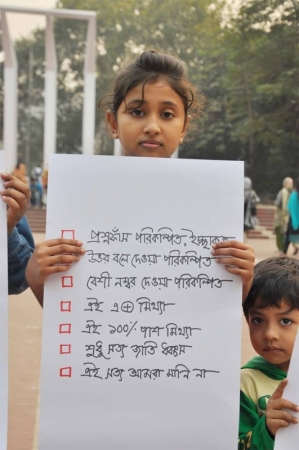 প্রশ্নফাঁস পরিকল্পিত, ইচ্ছাকৃত
উত্তর বলে দেওয়া পরিকল্পিত
বেশী নম্বর দেওয়া পরিকল্পিত
এই এ⊕ মিথ্যা
এই ১০০% পাশ মিথ্যা
শুধু সত্য জাতি ধ্বংস
এই সত্য আমরা মানি না